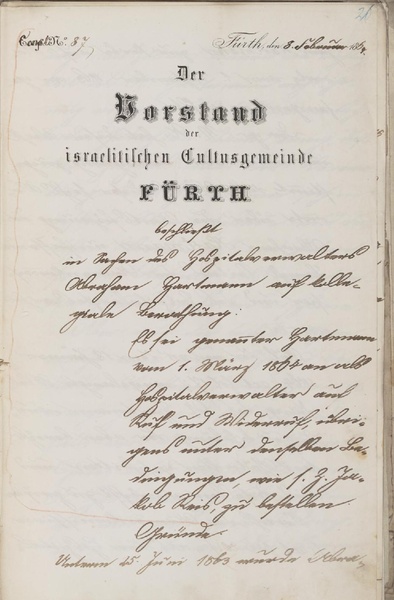 21
Exp. No. 87
Fürth, den 8. Februar 1864.
Der
Vorstand
der
israelitischen Cultusgemeinde
FÜRTH
beschließt
in Sachen des Hospitalverwalters
Abraham Hartmann auf kolle-
giale Berathung:
Es sei genannter Hartmann
vom 1. März 1864 an als
Hospitalverwalter auf
Ruf und Widerruf, übri-
gens unter denselben Be-
dingungen, wie s. Z. Ja-
kob Reis, zu bestellen.
Gründe.
Unterm 15. Juni 1863 wurde Abra-